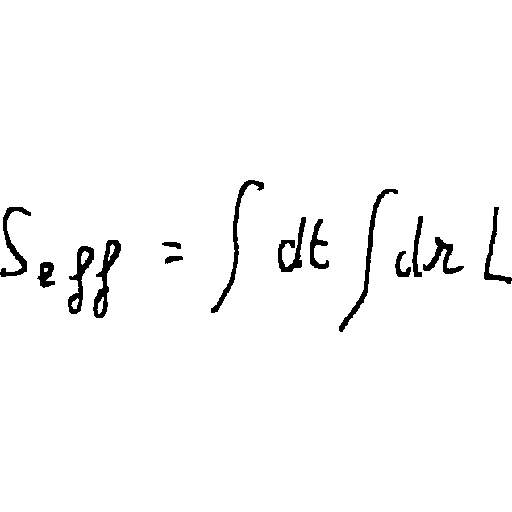 S_{eff} = \int dt \int dr L